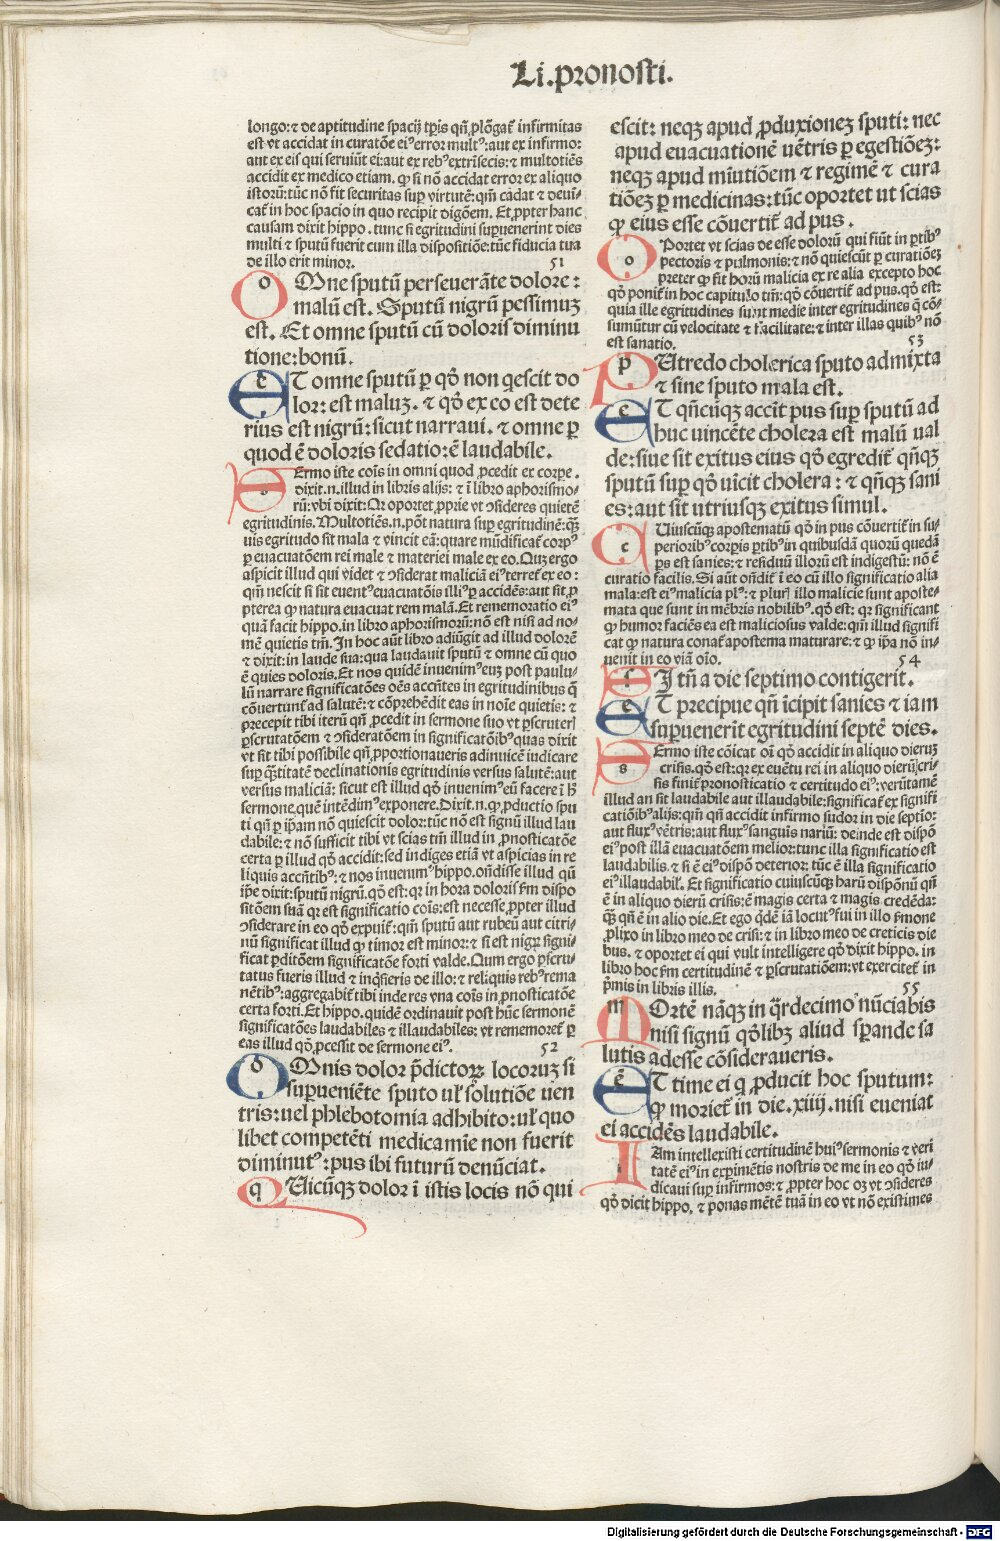 Li.pronosti.
longo:⁊ de aptitudine spacij tp̄is qñ ꝓlōgat᷑ infirmitas
est vt accidat in curatōe eiꝰ error multꝰ:aut ex infirmo:
aut ex eis qui seruiūt ei:aut ex rebꝰ extrīsecis:⁊ multotiēs
accidit ex medico etiam. ꝙ si nō accidat error ex aliquo
istorū:tūc nō fit securitas suꝑ virtutē:qm̄ cadat ⁊ deui-
cat᷑ in hoc spacio in quo recipit digōem. Et ꝓpter hanc
causam dixit hippo. tunc si egritudini suꝑuenerint dies
multi ⁊ sputū fuerit cum illa dispositiōe:tūc fiducia tua
de illo erit minor. 51
OMne sputū perseuerāte dolore:
malū est. Sputū nigrū pessimuꝫ
est. Et omne sputū cū doloris diminu
tione:bonū.
ET omne sputū ꝑ qđ non qescit do
lor: est maluꝫ. ⁊ qđ ex eo est dete
rius est nigrū:sicut narraui. ⁊ omne ꝑ
quod ē doloris sedatio:ē laudabile.
Ermo iste cōis in omni quod ꝓcedit ex corpe.
dixit.n.illud in libris alijs: ⁊ ī libro aphorismo-
rū:vbi dixit: Qr oportet ꝓprie vt ꝯsideres quietē
egritudinis. Multotiēs.n.pōt natura suꝑ egritudinē:qꝫ
uis egritudo sit mala ⁊ vincit eā: quare mūdificat᷑ corpꝰ
ꝑ euacuatōem rei male ⁊ materiei male ex eo. Qui ergo
aspicit illud qui videt ⁊ ꝯsiderat maliciā eiꝰ terret᷑ ex eo:
qm̄ nescit si sit euentꝰ euacuatōis illiꝰ ꝑ accidēs:aut sit ꝓ
pterea ꝙ natura euacuat rem malā. Et rememoratio eiꝰ
quā facit hippo.in libro aphorismorū:nō est nisi ad no-
mē quietis tm̄. In hoc aūt libro adiūgit ad illud dolorē
⁊ dixit:in laude sua:qua laudauit sputū ⁊ omne cū quo
ē quies doloris. Et nos quidē inuenimꝰ euꝫ post paulu-
lū narrare significatōes oēs accn̄tes in egritudinibus q̄
cōuertunt᷑ ad salutē: ⁊ cōprehēdit eas in noīe quietis: ⁊
precepit tibi iterū qn̄ ꝓcedit in sermone suo vt ꝑscruteris
ꝑscrutatōem ⁊ ꝯsideratōem in significatōibꝰ quas dixit
vt sit tibi possibile qn̄ ꝓportionaueris adinuicē iudicare
suꝑ q̄titatē declinationis egritudinis versus salutē:aut
versus maliciā: sicut est illud qđ inuenimꝰ eū facere ī hꝰ
sermone.quē intēdimꝰ exponere. Dixit.n. ꝙ ꝓductio spu
ti qn̄ ꝑ ip̄am nō quiescit dolor:tūc nō est signū illud lau
dabile: ⁊ nō sufficit tibi vt scias tm̄ illud in ꝓnosticatōe
certa ꝑ illud qđ accidit:sed indiges etiā vt aspicias in re
liquis accn̄tibꝰ: ⁊ nos inuenimꝰ hippo. on̄disse illud qn̄
ip̄e dixit:sputū nigrū. qđ est: qr in hora doloris fm̄ dispo
sitōem suā qr est significatio cōis:est necesse ꝓpter illud
ꝯsiderare in eo qđ expuit᷑: qm̄ sputū aut rubeū aut citri-
nū significat illud ꝙ timor est minor: ⁊ si est nigꝝ signi-
ficat ꝑditōem significatōe forti valde. Cum ergo ꝑscru-
tatus fueris illud ⁊ inq̄sieris de illo: ⁊ reliquis rebꝰ rema
nētibꝰ:aggregabit᷑ tibi inde res vna cōis in ꝓnosticatōe
certa forti. Et hippo. quidē ordinauit post hūc sermonē
significatōes laudabiles ⁊ illaudabiles: vt rememoret᷑ ꝑ
eas illud qđ ꝓcessit de sermone eiꝰ. 52
OMnis dolor p̄dictoꝝ locoruꝫ si
suꝑueniēte sputo uł solutiōe uen
tris:uel phlebotomia adhibito:uł quo
libet competēti medicamīe non fuerit
diminutꝰ:pus ibi futurū denūciat.
qUicūqꝫ dolor ī istis locis nō qui
escit: neqꝫ apud ꝓduxionez sputi: nec
apud euacuationē uētris ꝑ egestiōeꝫ:
neqꝫ apud mīutiōem ⁊ regimē ⁊ cura
tiōeꝫ ꝑ medicinas:tūc oportet ut scias
ꝙ eius esse cōuertit᷑ ad pus.
OPortet vt scias de esse dolorū qui fiūt in ꝑtibꝰ
pectoris ⁊ pulmonis: ⁊ nō quiescūt ꝑ curatiōeꝫ
preter ꝙ fit horū malicia ex re alia excepto hoc
qđ ponit᷑ in hoc capitulo tm̄: qđ cōuertit᷑ ad pus. qđ est:
quia ille egritudines sunt medie inter egritudines q̄ cō-
sumūtur cū velocitate ⁊ facilitate: ⁊ inter illas quibꝰ nō
est sanatio. 53
PUtredo cholerica sputo admixta
⁊ sine sputo mala est.
ET qn̄cūqꝫ accīt pus suꝑ sputū ad
huc uincēte cholera est malū ual
de:siue sit exitus eius qđ egredit᷑ qn̄qꝫ
sputū suꝑ qđ uicit cholera: ⁊ qn̄qꝫ sani
es:aut sit utriusqꝫ exitus simul.
CUiuscūqꝫ apostematū qđ in pus cōuertit᷑ in su-
perioribꝰ corpis ꝑtibꝰ in quibusdā quorū quedā
ps est sanies: ⁊ residuū illorū est indigestū: nō ē
curatio facilis. Si aūt on̄dit᷑ ī eo cū illo significatio alia
mala:est eiꝰ malicia plꝰ: ⁊ plurī illo malicie sunt aposte-
mata que sunt in mēbris nobilibꝰ. qđ est: qr significant
ꝙ humor faciēs ea est maliciosus valde: qm̄ illud signifi
cat ꝙ natura conat᷑ apostema maturare: ⁊ ꝙ ip̄a nō in-
uenit in eo viā oīo. 54
SI tn̄ a die septimo contigerit.
ET precipue qn̄ īcipit sanies ⁊ iam
suꝑuenerit egritudini septē dies.
SErmo iste cōicat oī qđ accidit in aliquo dieruꝫ
crisis. qđ est: qr ex euētu rei in aliquo dierū cri-
sis finit᷑ pronosticatio ⁊ certitudo eiꝰ: verūtamē
illud an sit laudabile aut illaudabile:significat᷑ ex signifi
catiōibꝰ alijs: qm̄ qn̄ accidit infirmo sudor in die septio:
aut fluxꝰ vētris: aut fluxꝰ sanguīs nariū: deinde est dispō
eiꝰ post illā euacuatōem melior:tunc illa significatio est
laudabilis. ⁊ si ē eiꝰ dispō deterior: tūc ē illa significatio
eiꝰ illaudabił. Et significatio cuiuscūqꝫ harū dispōnū qn̄
ē in aliquo dierū crisis:ē magis certa ⁊ magis credēda:
qꝫ qn̄ ē in alio die. Et ego q̄dē iā locutꝰ fui in illo sermone
ꝓlixo in libro meo de crisi: ⁊ in libro meo de creticis die
bus. ⁊ oportet ei qui vult intelligere qđ dixit hippo. in
libro hoc fm̄ certitudinē ⁊ ꝑscrutatiōem:vt exercitet᷑ in
p̄mis in libris illis. 55
MOrtē nāqꝫ in q̄rdecimo nūciabis
nisi signū qđlibꝫ aliud sperande sa
lutis adesse cōsideraueris.
ET time ei q ꝓducit hoc sputum:
ꝙ moriet᷑ in die.xiiij.nisi eueniat
ei accidēs laudabile.
IAm intellexisti certitudinē huiꝰ sermonis ⁊ veri
tatē eiꝰ in experimētis nostris de me in eo qđ iu-
dicaui suꝑ infirmos: ⁊ ꝓpter hoc oꝫ vt ꝯsideres
qđ dicit hippo. ⁊ ponas mētē tuā in eo vt nō existimes
Digitalisierung gefördert durch die Deutsche Forschungsgemeinschaft - DFG